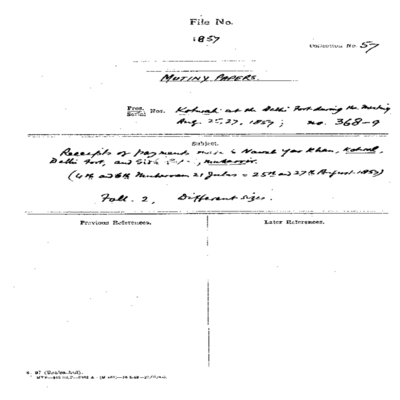 File No.
1857
Collection No 57
MUTINY PAPERS.
Pros. Serial Nos. Kotwal at the Delhi Fort during the Mutiny
Aug. 25, 27, 1857; no. 368-9
Subject.
Receipts of payments made to Nawab Yar Khan, Kotwal,
Delhi Fort, and muharrir.
(4th and 6th Muharram 21 Julus = 25th and 27th August 1857)
Foll. 2, Different sizes.
Previous References. Later References.